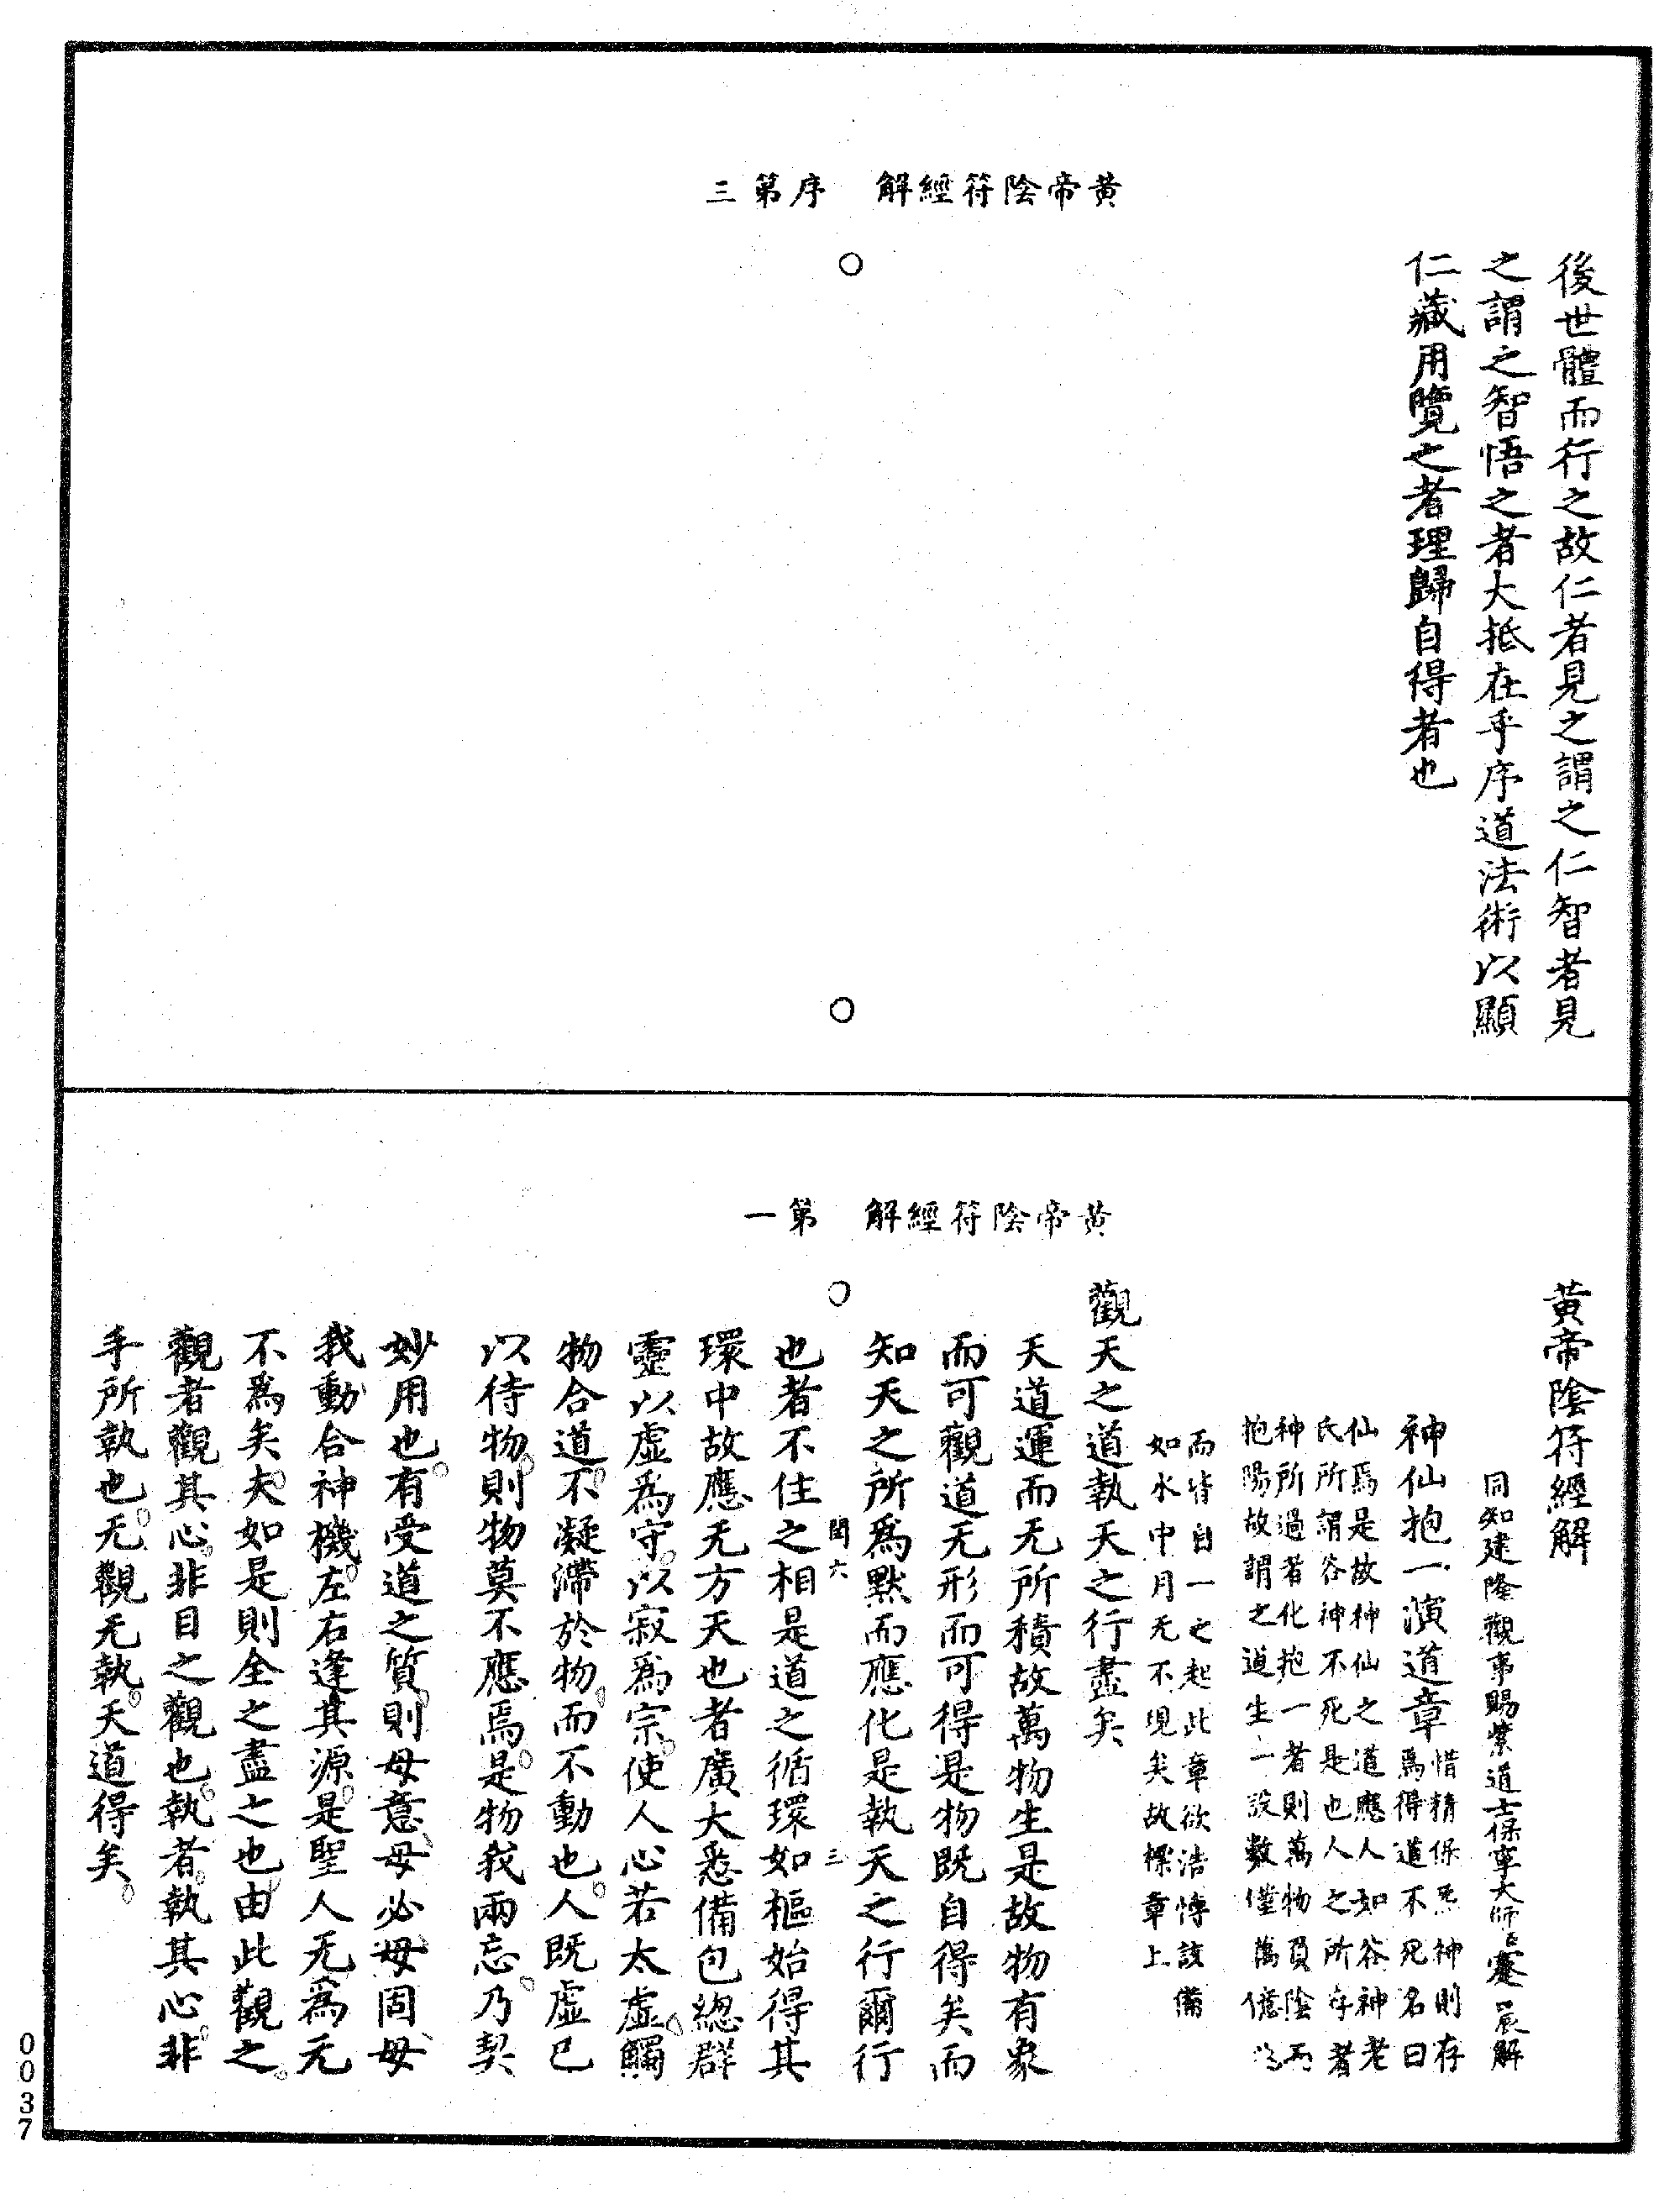 黄帝陰符經解　序第三
後世體而行之故仁者見之謂之仁智者見
之謂之智悟之者大抵在乎序道法術以顯
仁藏用覽之者理歸自得者也
黄帝陰符經解　第一
黄帝陰符經解
同知建隆觀事賜紫道士保寧大師臣蹇昌辰解
神仙抱一演道章
惜精保炁神則存
爲得道不死名曰
仙焉是故神仙之道應人人如谷神老
氏所謂谷神不死是也人之所存者
神所過者化抱一者則萬物負陰而
抱陽故謂之道生一一設數僅萬億
而皆自一之起此章欲浩博該備
如水中月无不現矣故標章上
觀天之道執天之行盡矣
天道運而无所積故萬物生是故物有象
而可觀道无形而可得是物既自得矣而
知天之所爲默而應化是執天之行爾行
閏六　三
也者不住之相是道之循環如樞始得其
環中故應无方天也者廣大悉備包總群
靈以虚爲守以寂爲宗使人心若太虚觸
物合道不凝滯於物而不動也人既虚已
以待物則物莫不應焉是物我兩忘乃契
妙用也有受道之質則毋意毋必毋固毋
我動合神機左右逢其源是聖人无爲无
不爲矣夫如是則全之盡之也由此觀之
觀者觀其心非目之觀也執者執其心非
手所執也无觀无執天道得矣
0037